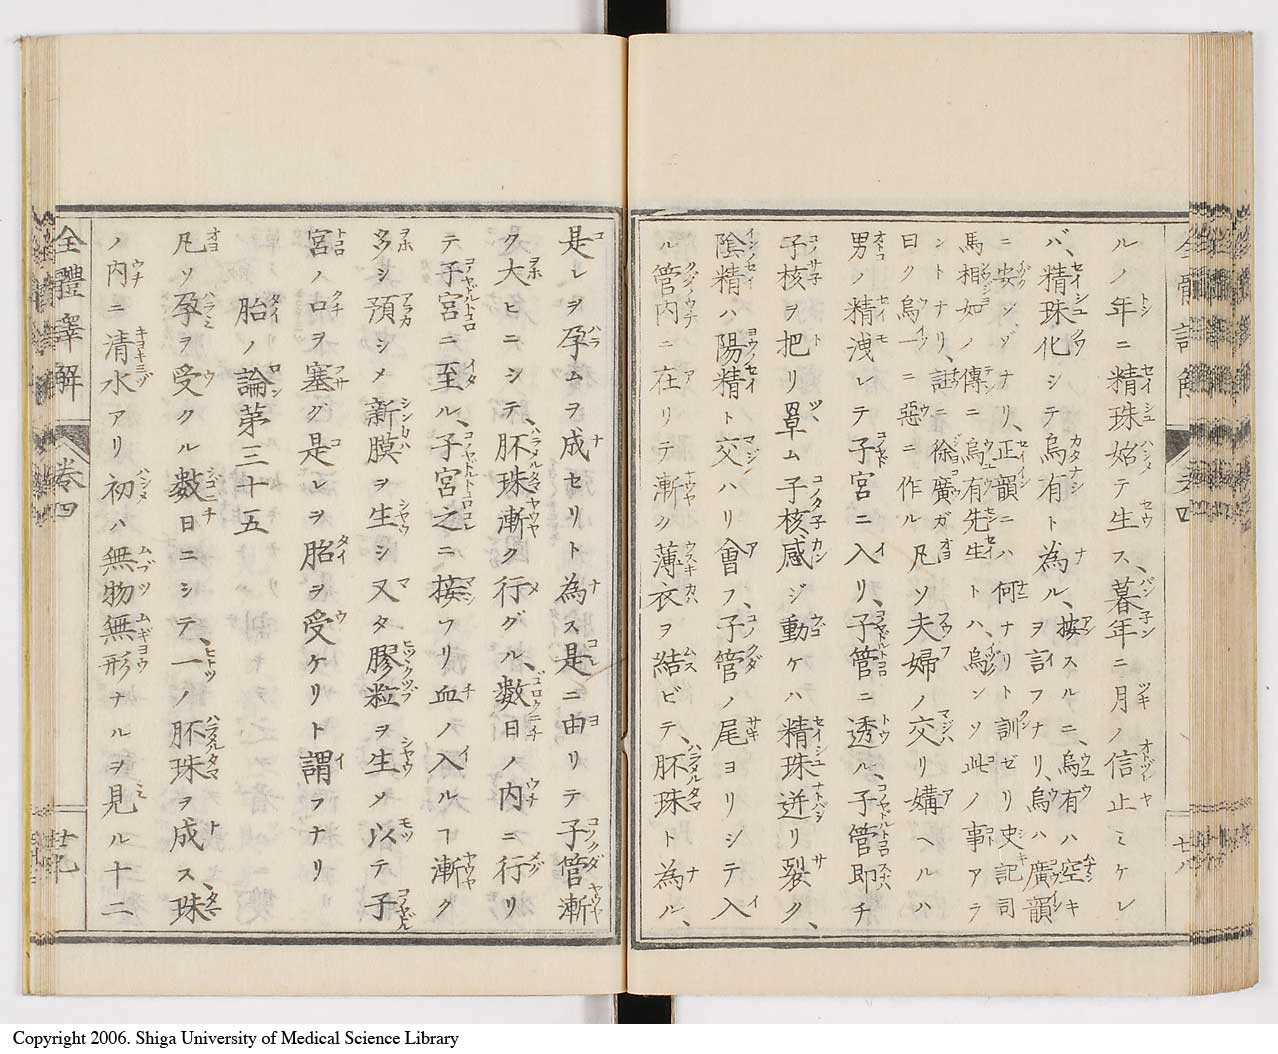 ルノ年ニ精珠始テ生ス、暮年ニ月ノ信止ミケレ
バ、精珠化シテ烏有ト為ル、按スルニ、烏有ハ空キ
ヲ言フナリ、烏ハ廣韻
ニ安ンゾナリ、正韻ニハ何ナリト訓ゼリ史記司
馬相如ノ傳ニ烏有先生トハ、烏ンソ此ノ事アラ
ントナリ、註ニ徐廣ガ
曰ク烏一ニ惡ニ作ル凡ソ夫婦ノ交リ媾ヘルハ
男ノ精洩レテ子宮ニ入リ、子管ニ透ル、子管即チ
子核ヲ把リ罩ム子核感ジ動ケハ精珠迸リ裂ク、
陰精ハ陽精ト交ハリ會フ、子管ノ尾ヨリシテ入
ル管内ニ在リテ漸ク薄衣ヲ結ビテ、胚珠ト為ル、
全體譯解
卷四
七八
是レヲ孕ムヲ成セリト為ス是ニ由リテ子管漸
ク大ヒニシテ、胚珠漸ク行グル、數日ノ内ニ行リ
テ子宮ニ至ル、子宮之ニ接ワリ血ノ入ルヿ漸ク
多シ預シメ新膜ヲ生シ又タ膠粒ヲ生メ以テ子
宮ノ口ヲ塞グ是レヲ胎ヲ受ケリト謂フナリ
胎ノ論第三十五
凡ソ孕ヲ受クル數日ニシテ、一ノ胚珠ヲ成ス、珠
ノ内ニ清水アリ初ハ無物無形ナルヲ見ル十二
全體譯解
卷四
廿九
Copyright 2006. Shiga University of Medical Science Library